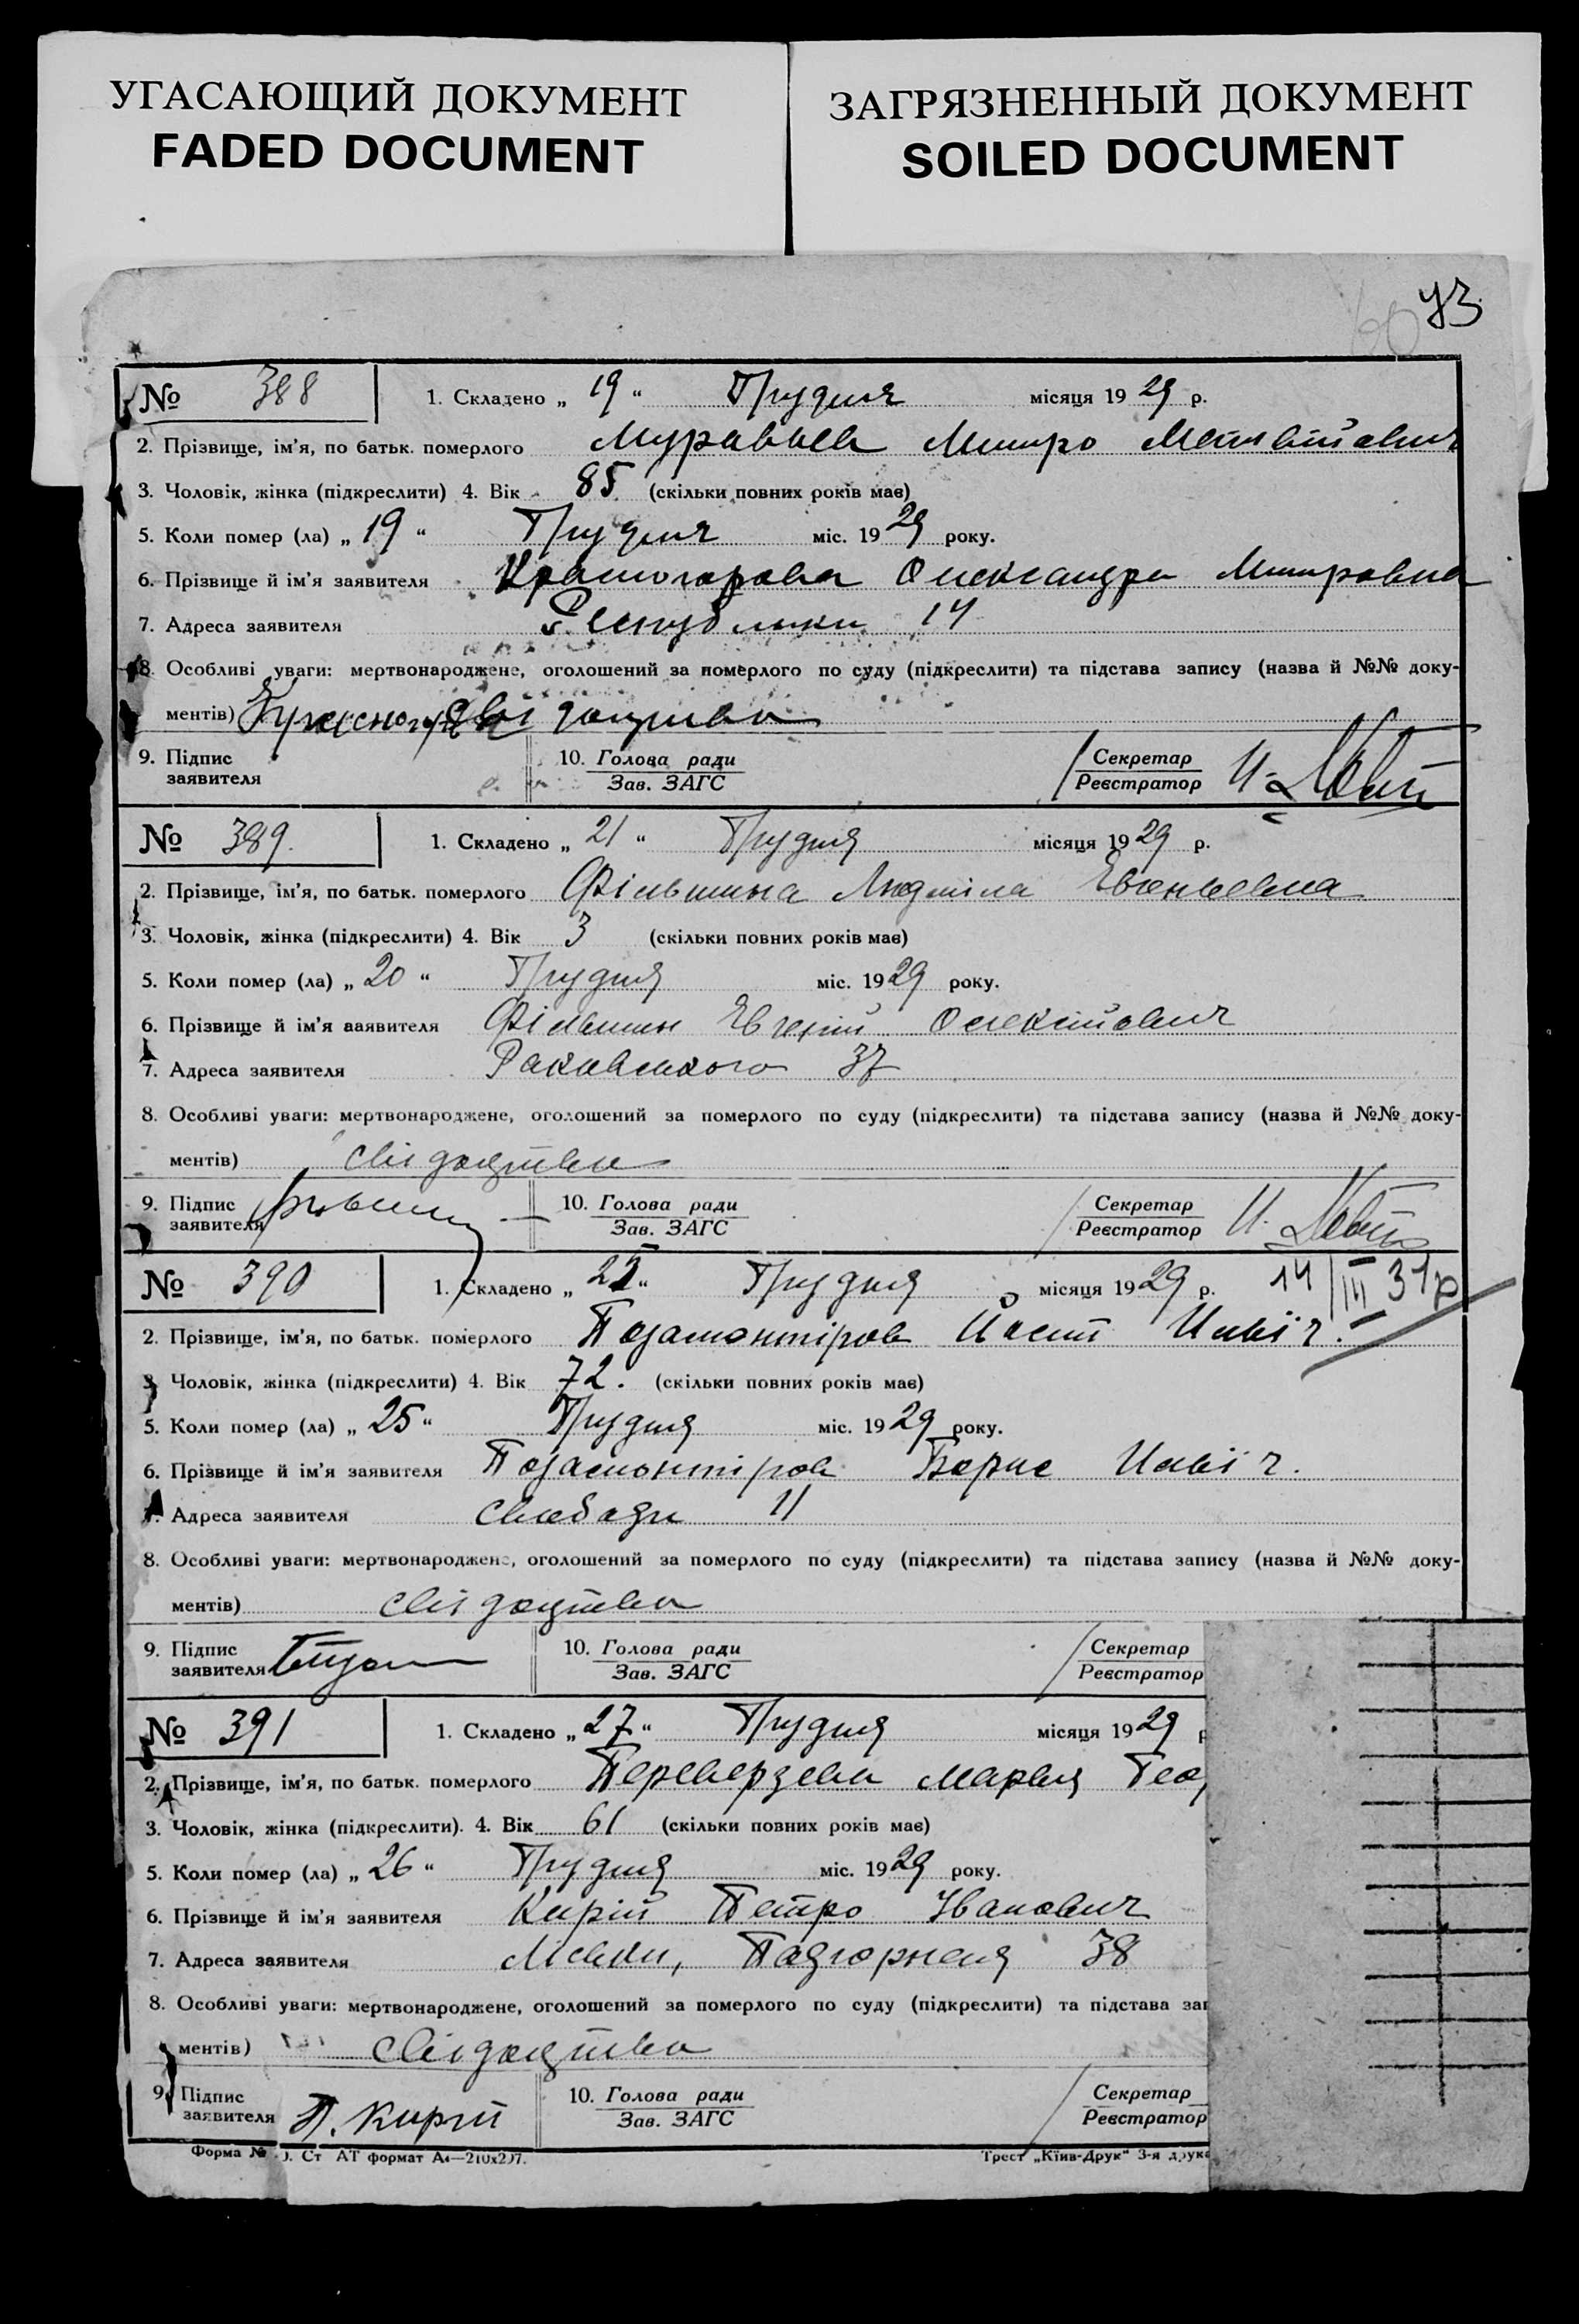 УГАСАЮЩИЙ ДОКУМЕНТ
FADED DOCUMENT
ЗАГРЯЗНЕННЫЙ ДОКУМЕНТ
SOILED DOCUMENT
60 73
№ 388 1. Складено „ 19 “ Грудня місяця 19 29 р.
2. Прізвище, ім’я, по батьк. померлого Муравьев Митро Матвійович
3. Чоловік, жінка (підкреслити) 4. Вік 85 (скільки повних років має)
5. Коли помер (ла) „ 19 “ Грудня міс. 19 29 року.
6. Прізвище й ім’я заявителя Олександра Митровна
7. Адреса заявителя Республики 14
8. Особливі уваги: мертвонароджене, оголошений за померлого по суду (підкреслити) та підстава запису (назва й №№ доку-
ментів)
9. Підпис заявителя 10. Голова ради Зав. ЗАГС Секретар Реєстратор
№ 389. 1. Складено „ 21 “ Грудня місяця 19 29 р.
2. Прізвище, ім’я, по батьк. померлого Фільшина Людміла Евгеньевна
3. Чоловік, жінка (підкреслити) 4. Вік 3 (скільки повних років має)
5. Коли помер (ла) „ 20 “ Грудня міс. 19 29 року.
6. Прізвище й ім’я заявителя Фільшин Евгеній Олексійович
7. Адреса заявителя Раковського 37
8. Особливі уваги: мертвонароджене, оголошений за померлого по суду (підкреслити) та підстава запису (назва й №№ доку-
ментів) свідоцтво
9. Підпис заявителя 10. Голова ради Зав. ЗАГС Секретар Реєстратор
№ 390 1. Складено „ “ Грудня місяця 19 29 р. 14/III 31р
2. Прізвище, ім’я, по батьк. померлого Позамонтіров
3. Чоловік, жінка (підкреслити) 4. Вік 72. (скільки повних років має)
5. Коли помер (ла) „ 25 “ Грудня міс. 19 29 року.
6. Прізвище й ім’я заявителя Позамонтіров Борис
7. Адреса заявителя Свободи 11
8. Особливі уваги: мертвонароджене, оголошений за померлого по суду (підкреслити) та підстава запису (назва й №№ доку-
ментів) свідоцтво
9. Підпис заявителя 10. Голова ради Зав. ЗАГС Секретар Реєстратор
№ 391 1. Складено „ 27 “ Грудня місяця 19 29 р
2. Прізвище, ім’я, по батьк. померлого Переверзева Марья Гео
3. Чоловік, жінка (підкреслити). 4. Вік 61 (скільки повних років має)
5. Коли помер (ла) „ 26 “ Грудня міс. 19 29 року.
6. Прізвище й ім’я заявителя Кирій Петро Іванович
7. Адреса заявителя Подгорная 38
8. Особливі уваги: мертвонароджене, оголошений за померлого по суду (підкреслити) та підстава зап
ментів) свідоцтво
9. Підпис заявителя П. Кирій 10. Голова ради Зав. ЗАГС Секретар Реєстратор
Форма № Ст АТ формат А4—210х297. Трест „Київ-Друк“ 3-я друка